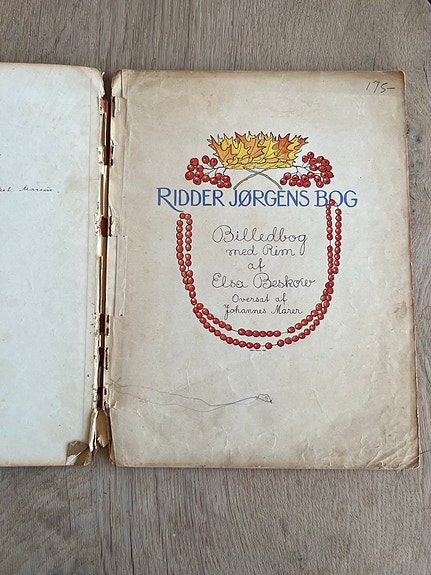 175-
RIDDER JØRGENS BOG
Billedbog
med Rim
af
Elsa Beskow
Oversat af
Johannes Marer